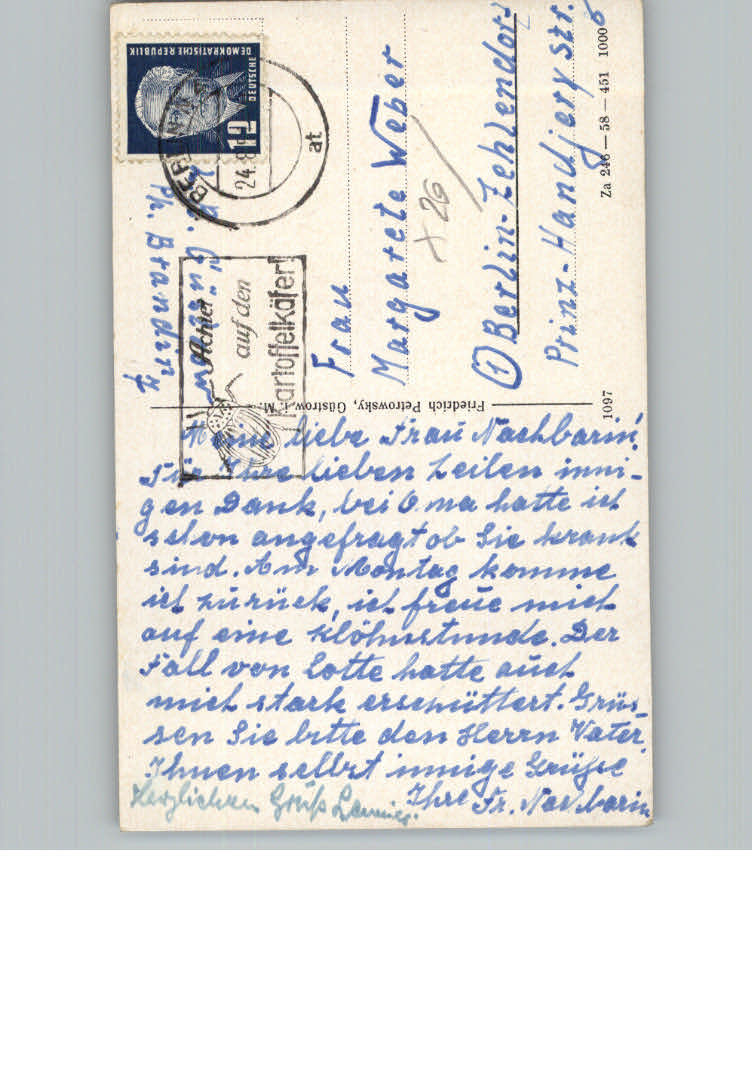 Meine liebe Frau Nachbarin!
Für Ihre lieben Zeilen inni-
gen Dank, bei Oma hatte ich
schon angefragt ob Sie krank
sind. Am Montag komme
ich zurück, ich freue mich
auf eine Klöhnstunde. Der
Fall von Lotte hatte auch
mich stark erschüttert. Grüs-
sen Sie bitte den Herrn Vater
Ihnen selbst innige Grüße
Ihre Fr. Nachbarin
Herzlichen Gruß
DEUTSCHE
DEMOKRATISCHE REPUBLIK
12
BERLIN
24.8
at
Achtet
auf den
Kartoffelkäfer!
Frau
Margarete Weber
x 26
(1) Berlin-Zehlendorf
Prinz-Handjery Str.
Friedrich Petrowsky, Güstrow i. M.
1097
Za 246 — 58 — 451 1000